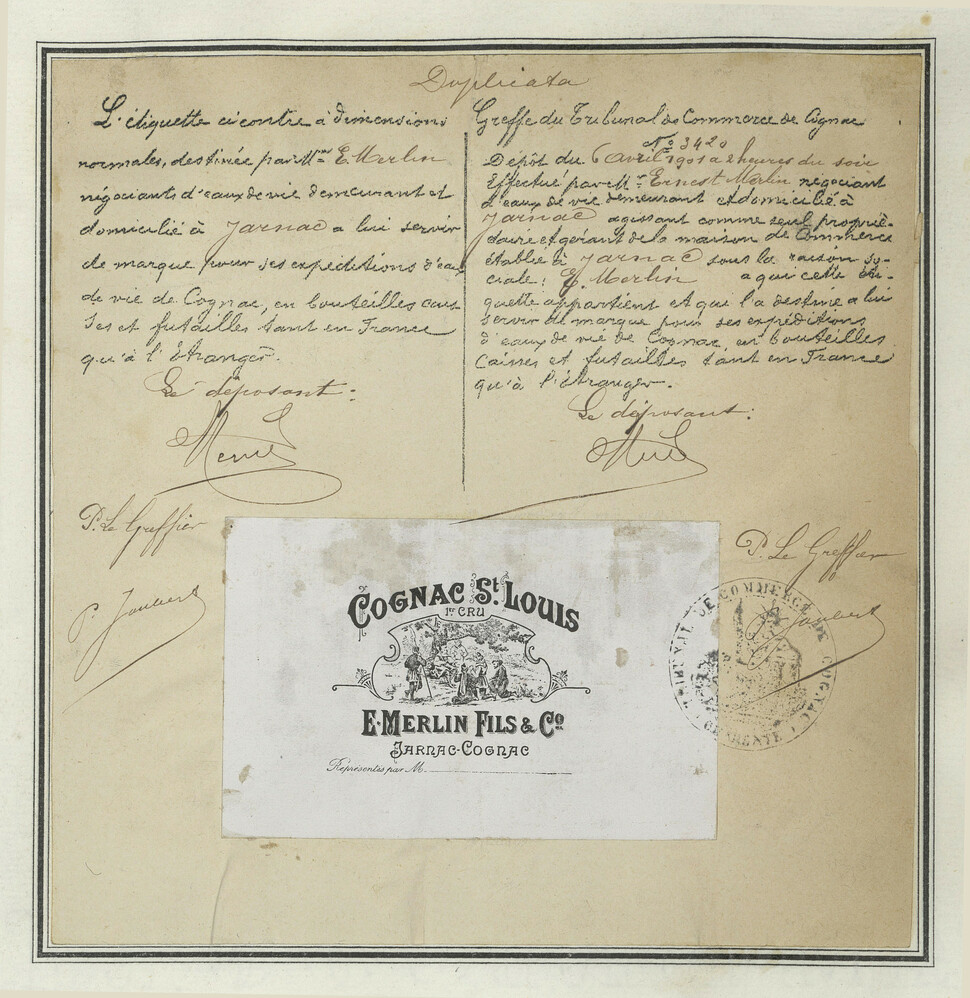 Duplicata
L'étiquette ci contre à dimensions
normales, destinée par Mrs E. Merlin
négociants d'eaux de vie demeurant et
domicilié à Jarnac a lui servir
de marque pour ses expéditions d'eau
de vie de Cognac, en bouteilles cais
ses et futailles tant en France
qu'à l'étranger.
Le déposant:
P. Le Greffier
P. Joubert
Greffe du Tribunal de Commerce de Cognac
No 3420
Dépôt du 6 avril 1901 a 2 heures du soir
Effectué par Mr Ernest Merlin négociant
d'eaux de vie demeurant et domicilié à
Jarnac agissant comme seul proprié-
taire et gérant de la maison de Commerce
établie à Jarnac sous la raison so-
ciale: E. Merlin a qui cette éti-
quette appartient et qui l'a destiné a lui
servir de marque pour ses expéditions
d'eaux de vie de Cognac, en bouteilles
Caisses et futailles tant en France
qu'à l'étranger.
Le déposant:
P. Le Greffier
Joubert
TRIBUNAL DE COMMERCE DE COGNAC
CHARENTE
COGNAC St. LOUIS
1er CRU
E. MERLIN FILS & Co
JARNAC-COGNAC
Représentés par M.